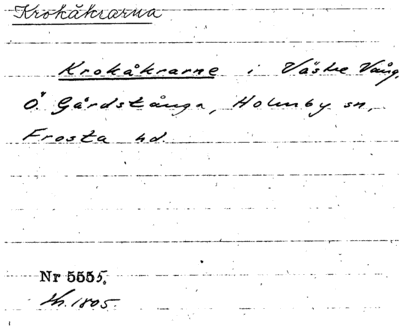 Krokåkrarna
Krokåkrarne i Västre Vång,
Ö Gårdstånga, Holmby sn,
Frosta hd.
Nr 5555.
1805.